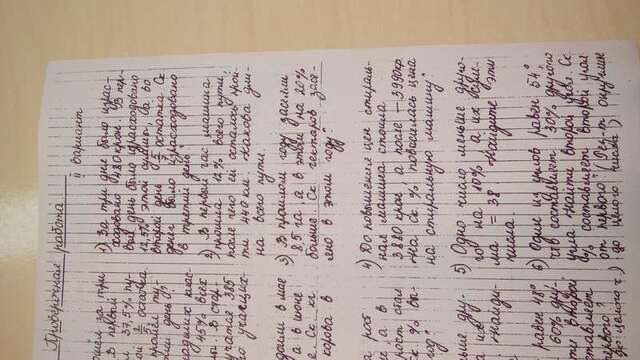 Проверочная работа
II вариант
ошёл за три
В первый
л 37,5% пу-
ой остатка.
прошёл ту-
ий день?
ладших клас-
45% всех
ы. В стар-
учатся 385
го учащих-
доили в мае
а в июне
е. Ск. кг
корова в
а рост
с, а в
рост стал
Ск % вы-
год?
ньше дру-
а их
Найди-
равен 48°
60% дру-
ти второй
ставляет
первого?
до целого ч.)
1) За три дня было израс-
ходовано 480 крон. В пер-
вый день было израсходовано
12,5% этой суммы, а во
второй день 5/7 остатка. Ск
денег было израсходовано
в третий день?
2) В первый час машина
прошла 12% всего пути,
после чего ей осталось прой-
ти 440 км. Какова дли-
на всего пути.
3) В прошлом году засеяли
8,5 га, а в этом на 20%
больше. Ск гектаров засе-
яно в этом году?
4) До повышения цен стираль-
ная машина стоила
3880 крон, а после – 3990кр
На ск. % повысилась цена
на стиральную машину?
5) Одно число меньше друго-
го на 10%, а их сум-
ма = 38 Найдите эти
числа.
6) Один из углов равен 54°,
что составляет 30% другого
угла. Найти второй угол. Ск
% составляет второй угол
от первого? (Рез-т округлит
до целого числа)